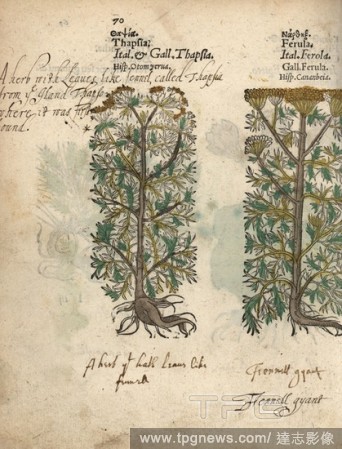 70
Θαψία.
Thapsia.
Ital. & Gall. Thapsia.
A herb with leaves like fennel, called Thapsia
from yͤ Iland Thaps
where it was first
found.
Νάρθηξ.
Ferula.
Ital. Ferola.
Gall. Ferula.
Hisp. Canaheia.
A herb yͭ hath leaves like
Fennell gyant
Fennell gyant
www.tpgnews.com/ 達志影像